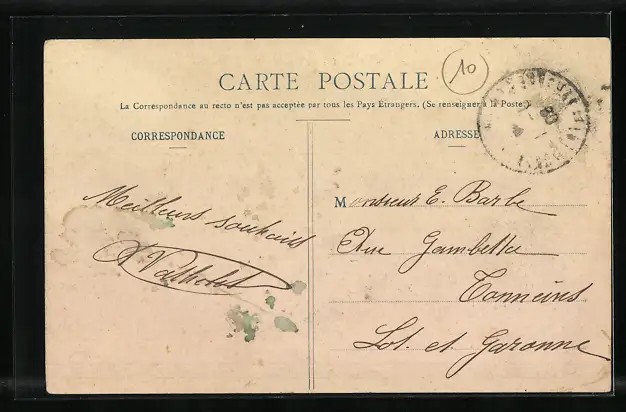 CARTE POSTALE
10
La Correspondance au recto n'est pas acceptée par tous les Pays Etrangers. (Se renseigner à la Poste.)
CORRESPONDANCE
ADRESSE
Meilleurs souhaits
Monsieur E. Barbe
Rue Gambetta
Tonneins
Lot et Garonne